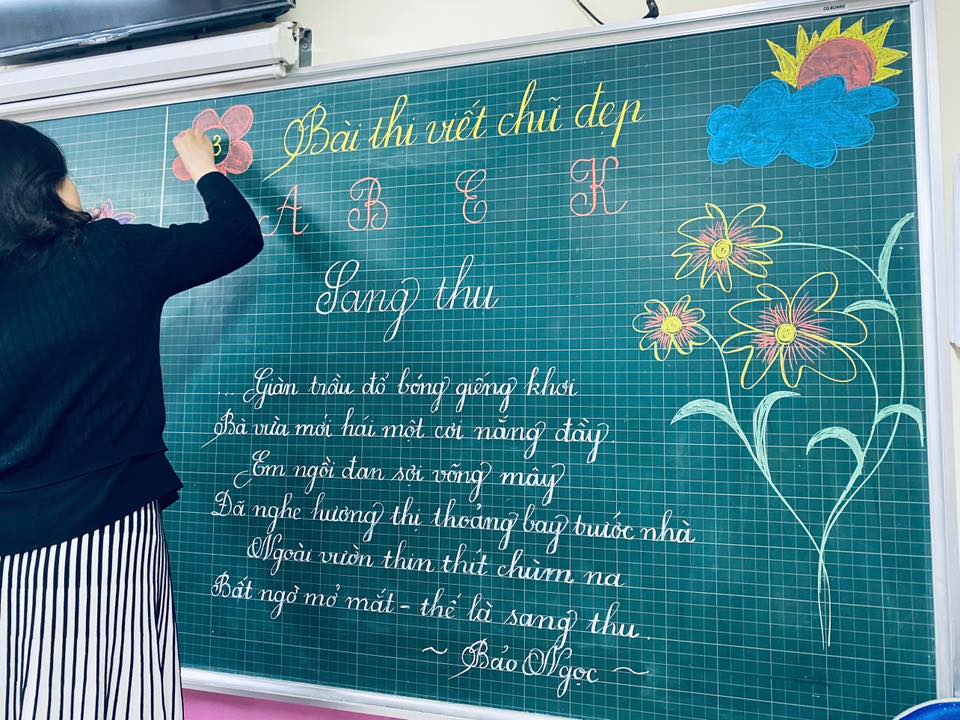 CQ BOARD
3
Bài thi viết chữ đẹp
A B E K
Sang thu
... Giàn trầu đổ bóng giếng khơi
Bà vừa mới hái một cơi nắng đầy.
Em ngồi đan sợi võng mây
Đã nghe hương thị thoảng bay trước nhà
Ngoài vườn thin thít chùm na
Bất ngờ mở mắt - thế là sang thu.
~ Bảo Ngọc ~